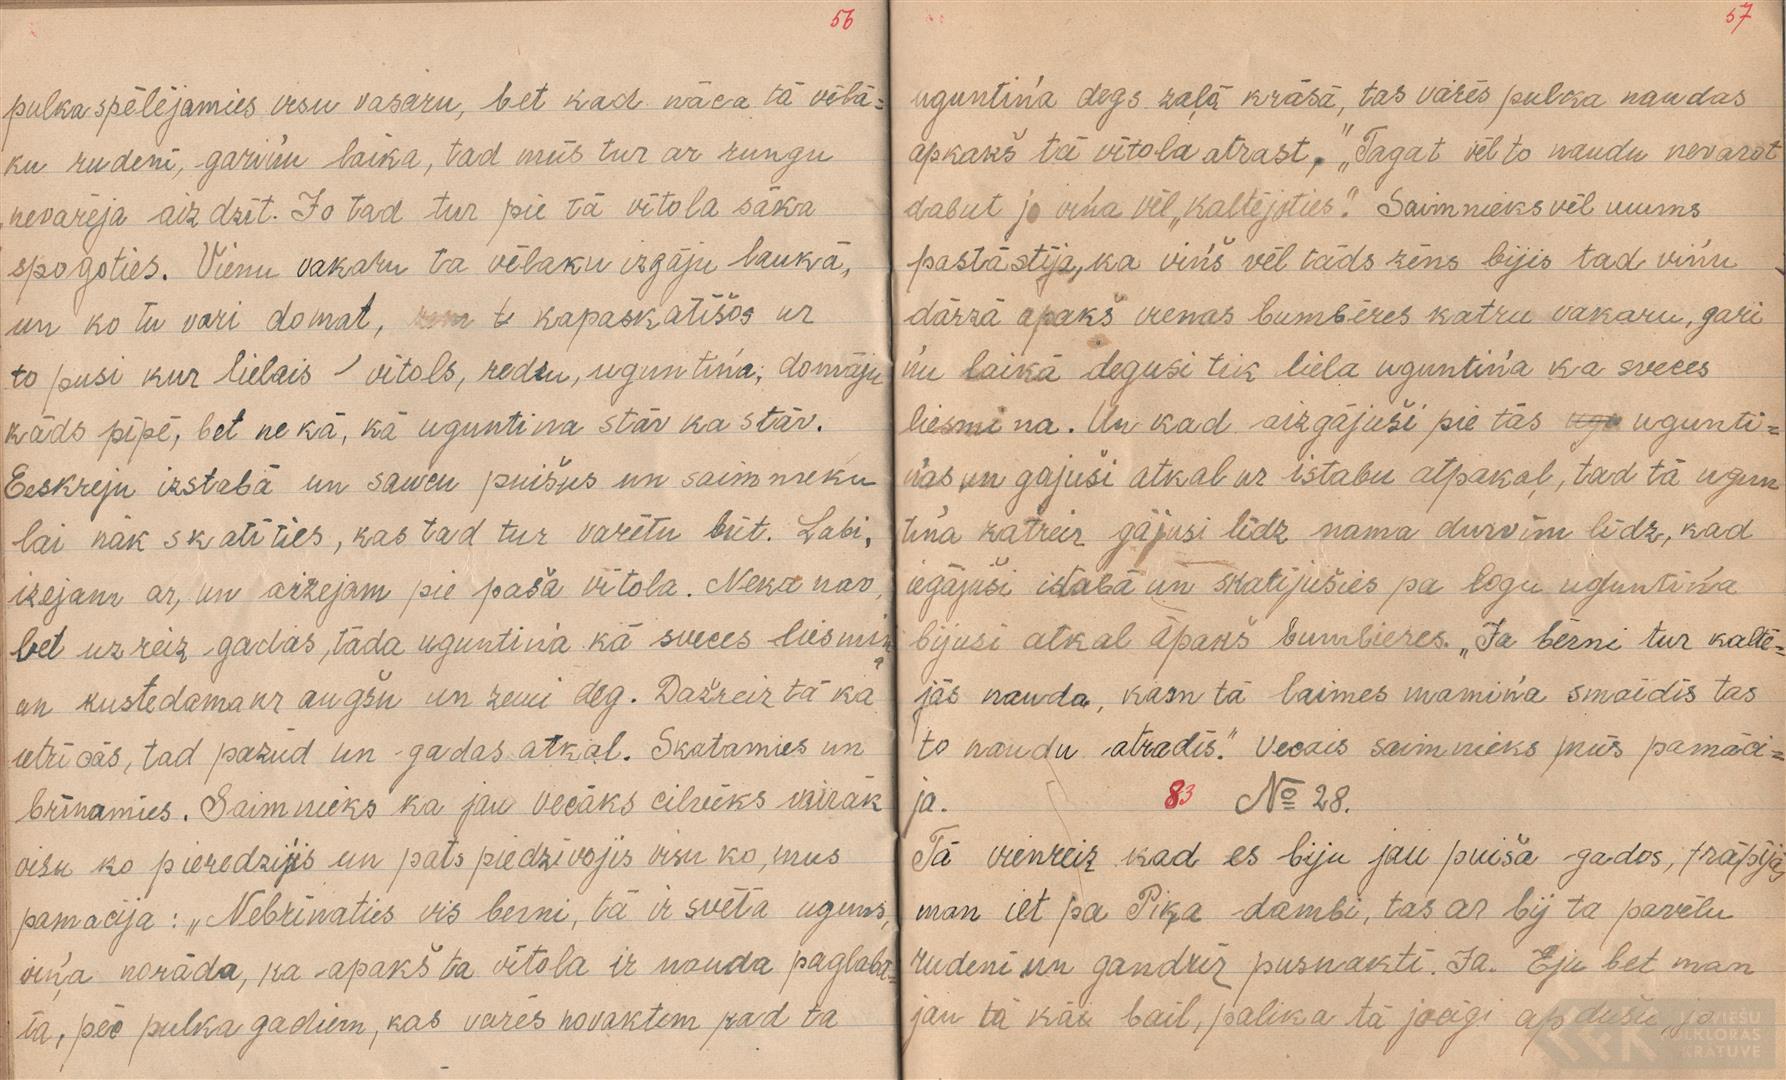 56
pulka spēlējamies visu vasaru, bet kad nāca tā vēlā=
ku rudenī, gariņu laika, tad mūs tur ar rungu
nevarēja aizdzīt. Jo tad tur pie tā vītola sāka
spogoties. Vienu vakaru ta vēlaku izgāju laukā,
un ko tu vari domat, kapaskatīšos uz
to pusi kur lielais vītols, redzu, uguntiņa, domāju
kāds pīpē, bet ne kā, kā uguntiņa stāv ka stāv.
Eeskreju izstabā un saucu puišus un saimnieku
lai nāk skatīties, kas tad tur varētu būt. Labi,
izejam ar, un aizejam pie paša vītola. Neka nav,
bet uzreiz gadas, tāda uguntiņa kā sveces liesmiņa
un kustedama uz augšu un zemi deg. Dažreiz tā kā
utricās, tad pazūd un gadas atkal. Skatamies un
brīnamies. Saimnieks ka jau vecāks cilvēks vairāk
visu ko pieredzijis un pats piedzīvojis visu ko, mus
pamacija: „Nebrīnaties vis berni, tā ir svēta uguns,
viņa norāda, ka apakš ta vītola ir nauda paglabā=
ta, pēc pulka gadiem, kas varēs novaktēm kad ta
57
uguntiņa degs zaļā krāsā, tas varēs pulka naudas
apkakš tā vītola atrast." „Tagat vēl to naudu nevarot
dabut jo viņa vēl „kaltējoties". Saimnieks vēl mums
pastāstīja, ka viņš vēl tāds zēns bijis tad viņu
dārzā apakš vienas bumbēres katru vakaru, gari
ņu laikā degusi tik liela uguntiņa ka sveces
liesmina. Un kad aizgājuši pie tās ugunti=
ņas un gajuši atkal uz istabu atpakaļ, tad tā ugun
tiņa katreiz gājusi līdz nama durvīm līdz, kad
iegājuši istabā un skatijušies pa logu uguntiņa
bijusi atkal apakš bumbieres. „Ja bērni tur kaltē=
jās nauda, kam tā laimes mamiņa smaidīs tas
to naudu atradīs." Vecais saimnieks mūs pamāci=
ja. 83 № 28.
Tā vienreiz kad es biju jau puiša gados, trāpījās
man iet pa Piķa dambi, tas ar bij ta pavēlu
rudeni un gandrīz pusnakti. Ja. Eju bet man
jau tā kāi bail, palika tā jocīgi ap dušu, jo
LATVIEŠU
FOLKLORAS
KRĀTUVE